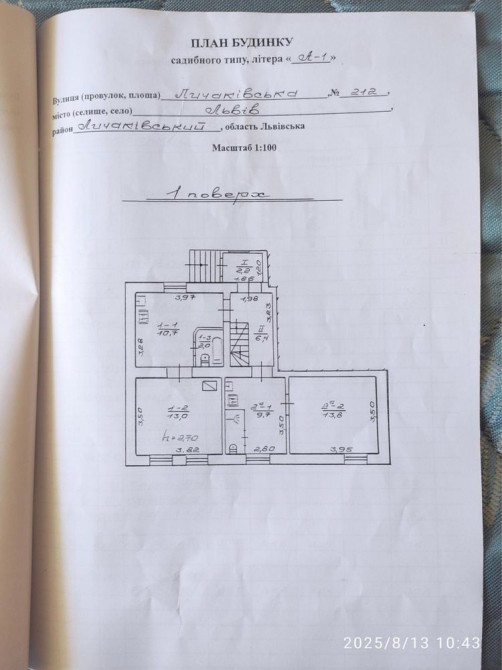 ПЛАН БУДИНКУ
садибного типу, літера « А-1 »
Вулиця (провулок, площа) Личаківська № 212,
місто (селище, село) Львів ,
район Личаківський , область Львівська
Масштаб 1:100
1 поверх
I
2,2
1,20
1,86
3,97
1,98
1-1
10,7
3,28
1-3
2,0
3,23
II
6,4
3,50
1-2
13,0
h=2,70
3,62
2-1
9,7
3,50
2,80
2-2
13,8
3,50
3,95
2025/8/13 10:43